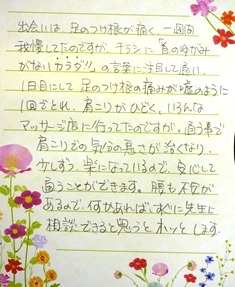 出会いは、足のつけ根が痛く 一週間
我慢してたのですが、チラシに「首のゆがみ
がないカラダ!!」の言葉に注目して通い、
1日目にして、足のつけ根の痛みが嘘のように
1回でとれ、肩こりがひどく、いろんな
マッサージ店に行ってたのですが、
肩こりでの気分の悪さが治くなり、
少しずつ、楽になっているので、安心して
通うことができます。腰も不安が
あるので、何かあれば、すぐに先生に
相談できると思うと ホッと します。